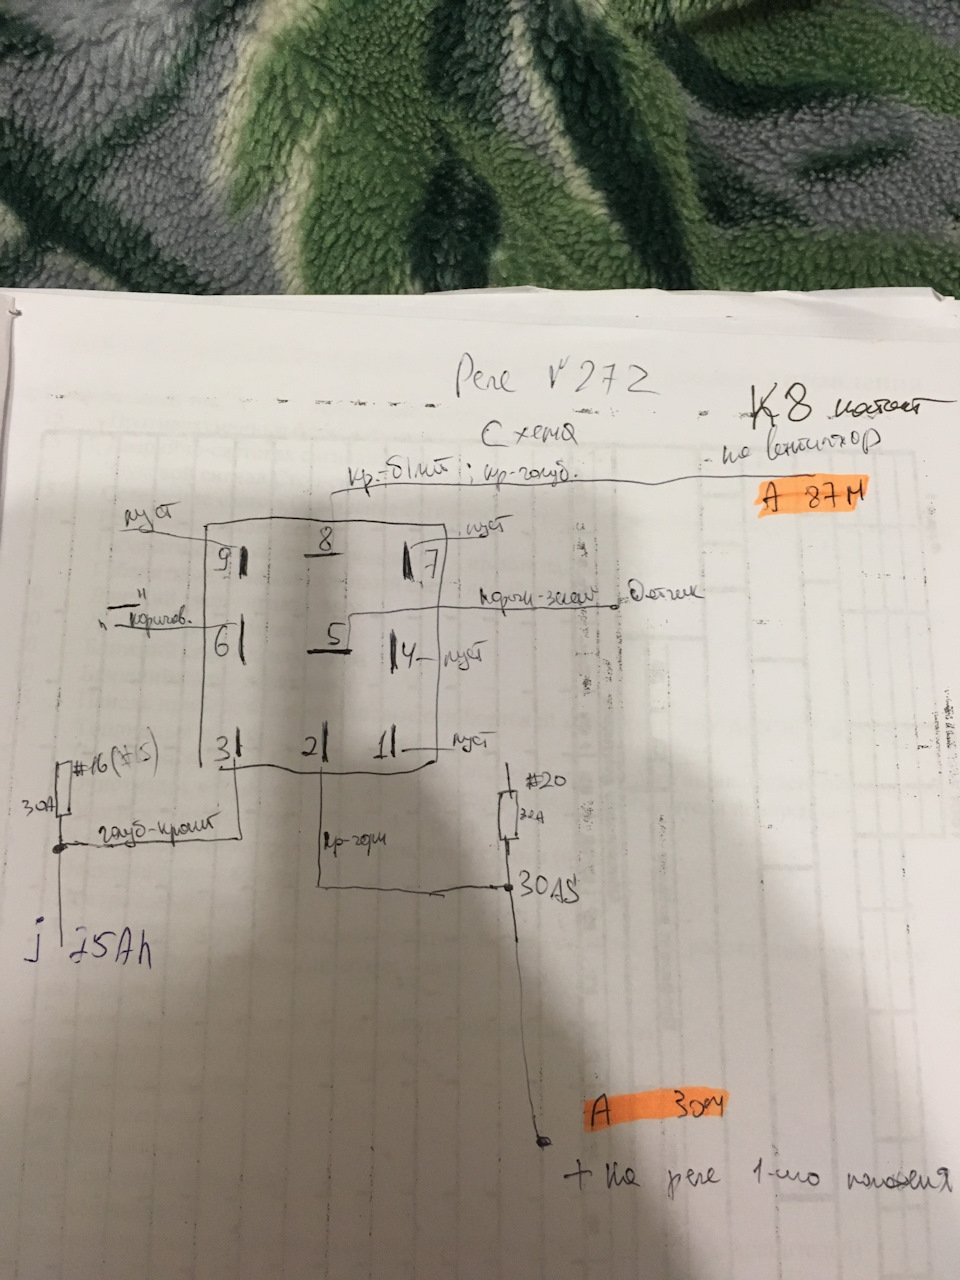 Реле № 272
Схема
К8 контакт
- на вентилятор
кр.-білий ; кр-голуб.
А 87М
пуст
пуст
9
8
7
коричн-зелен
Датчик
"-"
коричнев.
6
5
4
пуст
3
2
1
пуст
#16 (#15)
30А
#20
30А
голуб-кр
кр-чорн
30AS
j 75Ah
А 30м
+ на реле 1-го положения